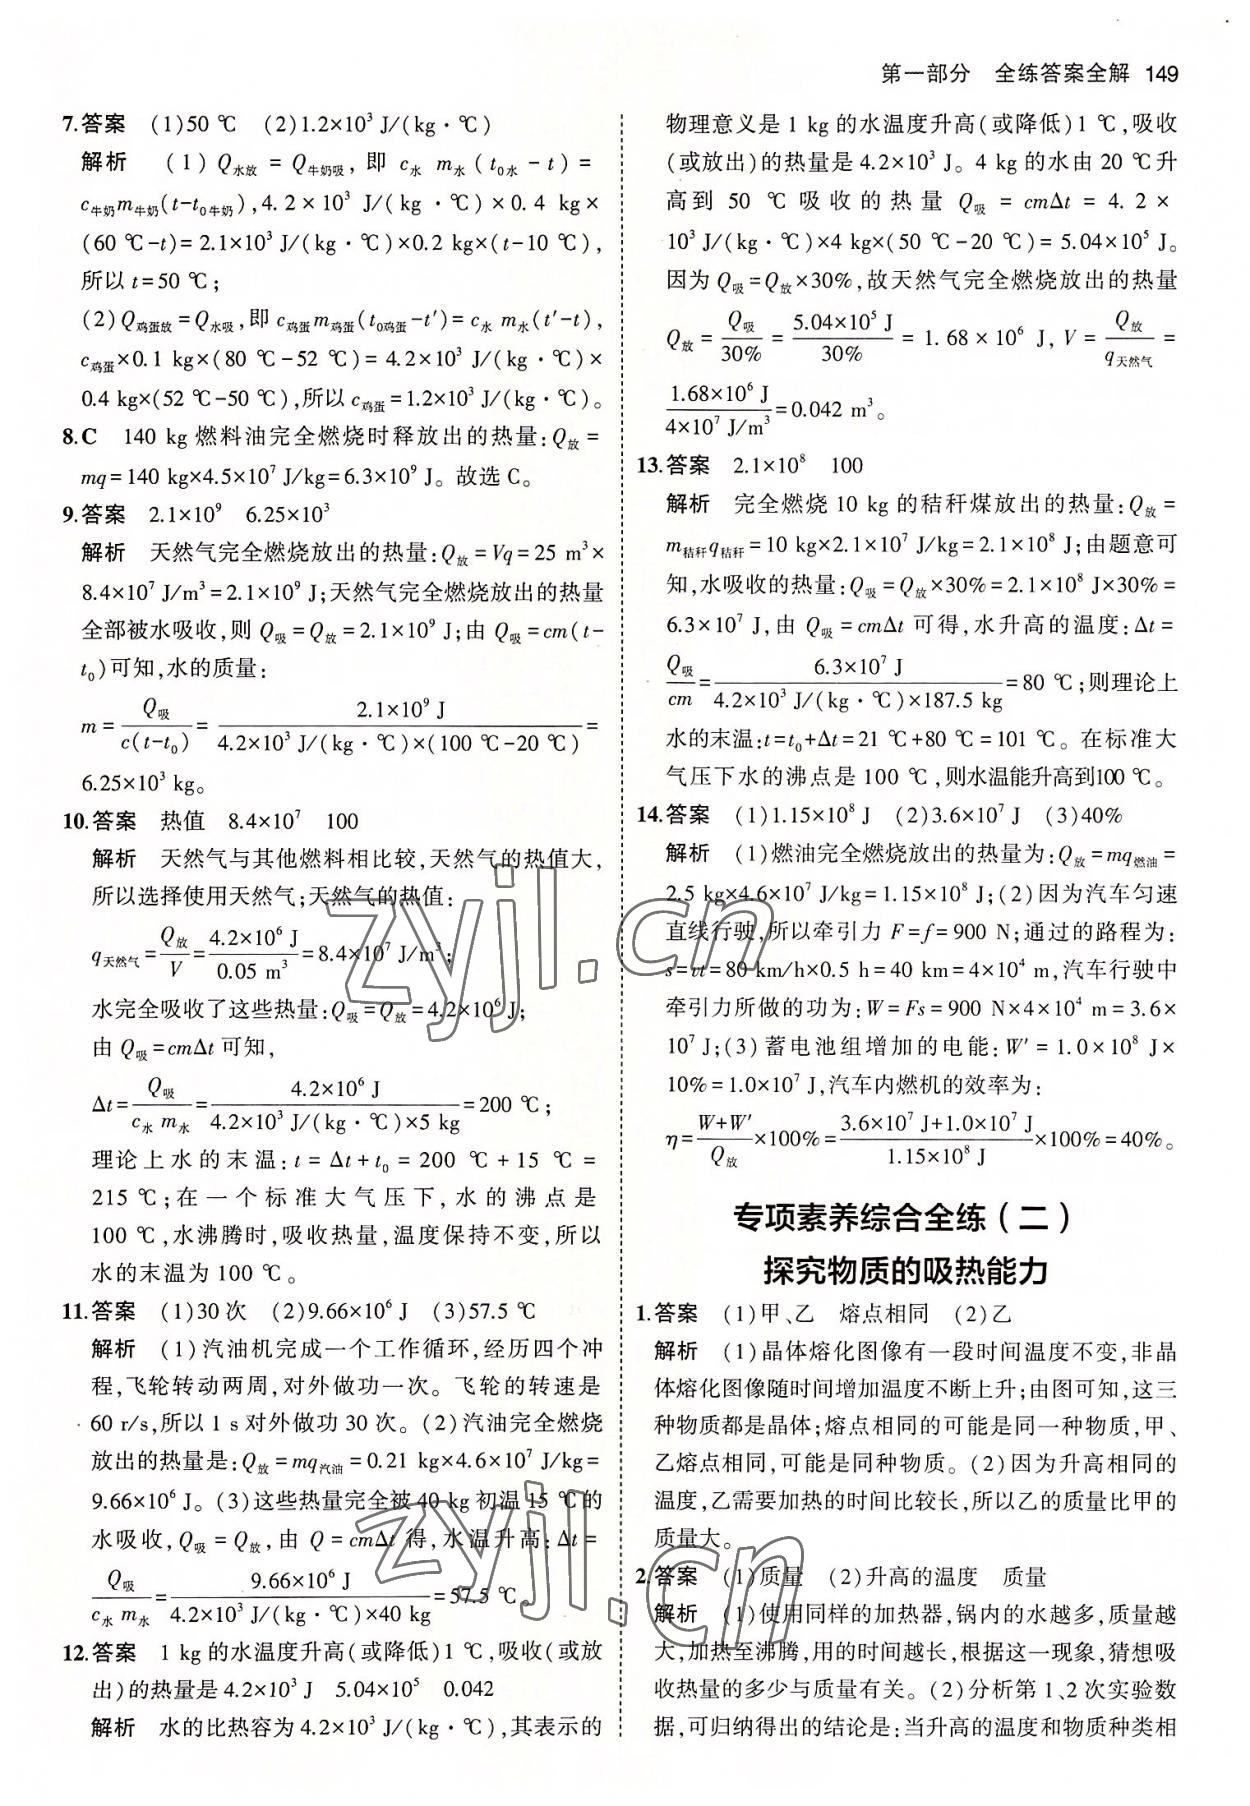 第一部分 全练答案全解 149
7.答案 (1)50 ℃ (2)1.2×10³ J/(kg·℃)
解析 (1) Q水放 = Q牛奶吸,即 c水 m水 (t0水 - t) =
c牛奶m牛奶(t-t0牛奶),4.2×10³ J/(kg·℃)×0.4 kg×
(60 ℃-t)=2.1×10³ J/(kg·℃)×0.2 kg×(t-10 ℃),
所以 t=50 ℃;
(2)Q鸡蛋放=Q水吸,即 c鸡蛋m鸡蛋(t0鸡蛋-t′)=c水 m水(t′-t),
c鸡蛋×0.1 kg×(80 ℃-52 ℃)=4.2×10³ J/(kg·℃)×
0.4 kg×(52 ℃-50 ℃),所以 c鸡蛋=1.2×10³ J/(kg·℃)。
8.C 140 kg 燃料油完全燃烧时释放出的热量:Q放=
mq=140 kg×4.5×10⁷ J/kg=6.3×10⁹ J。故选 C。
9.答案 2.1×10⁹ 6.25×10³
解析 天然气完全燃烧放出的热量:Q放=Vq=25 m³×
8.4×10⁷ J/m³=2.1×10⁹ J;天然气完全燃烧放出的热量
全部被水吸收,则 Q吸=Q放=2.1×10⁹ J;由 Q吸=cm(t-
t0)可知,水的质量:
m=Q吸/c(t-t0)=2.1×10⁹ J/4.2×10³ J/(kg·℃)×(100 ℃-20 ℃)=
6.25×10³ kg。
10.答案 热值 8.4×10⁷ 100
解析 天然气与其他燃料相比较,天然气的热值大,
所以选择使用天然气;天然气的热值:
q天然气=Q放/V=4.2×10⁶ J/0.05 m³=8.4×10⁷ J/m³;
水完全吸收了这些热量:Q吸=Q放=4.2×10⁶ J;
由 Q吸=cmΔt 可知,
Δt=Q吸/c水 m水=4.2×10⁶ J/4.2×10³ J/(kg·℃)×5 kg=200 ℃;
理论上水的末温:t=Δt+t0=200 ℃+15 ℃=
215 ℃;在一个标准大气压下,水的沸点是
100 ℃,水沸腾时,吸收热量,温度保持不变,所以
水的末温为 100 ℃。
11.答案 (1)30 次 (2)9.66×10⁶ J (3)57.5 ℃
解析 (1)汽油机完成一个工作循环,经历四个冲
程,飞轮转动两周,对外做功一次。飞轮的转速是
60 r/s,所以 1 s 对外做功 30 次。(2)汽油完全燃烧
放出的热量是:Q放=mq汽油=0.21 kg×4.6×10⁷ J/kg=
9.66×10⁶ J。(3)这些热量完全被 40 kg 初温 15 ℃的
水吸收,Q吸=Q放,由 Q=cmΔt 得,水温升高:Δt=
Q吸/c水 m水=9.66×10⁶ J/4.2×10³ J/(kg·℃)×40 kg=57.5 ℃。
12.答案 1 kg 的水温度升高(或降低)1 ℃,吸收(或放
出)的热量是 4.2×10³ J 5.04×10⁵ 0.042
解析 水的比热容为 4.2×10³ J/(kg·℃),其表示的
物理意义是 1 kg 的水温度升高(或降低)1 ℃,吸收
(或放出)的热量是 4.2×10³ J。4 kg 的水由 20 ℃升
高到 50 ℃吸收的热量 Q吸=cmΔt=4.2×
10³ J/(kg·℃)×4 kg×(50 ℃-20 ℃)=5.04×10⁵ J。
因为 Q吸=Q放×30%,故天然气完全燃烧放出的热量
Q放=Q吸/30%=5.04×10⁵ J/30%=1.68×10⁶ J,V=Q放/q天然气=
1.68×10⁶ J/4×10⁷ J/m³=0.042 m³。
13.答案 2.1×10⁸ 100
解析 完全燃烧 10 kg 的秸秆煤放出的热量:Q放=
m秸秆q秸秆=10 kg×2.1×10⁷ J/kg=2.1×10⁸ J;由题意可
知,水吸收的热量:Q吸=Q放×30%=2.1×10⁸ J×30%=
6.3×10⁷ J,由 Q吸=cmΔt 可得,水升高的温度:Δt=
Q吸/cm=6.3×10⁷ J/4.2×10³ J/(kg·℃)×187.5 kg=80 ℃;则理论上
水的末温:t=t0+Δt=21 ℃+80 ℃=101 ℃。在标准大
气压下水的沸点是 100 ℃,则水温能升高到100 ℃。
14.答案 (1)1.15×10⁸ J (2)3.6×10⁷ J (3)40%
解析 (1)燃油完全燃烧放出的热量为:Q放=mq燃油=
2.5 kg×4.6×10⁷ J/kg=1.15×10⁸ J;(2)因为汽车匀速
直线行驶,所以牵引力 F=f=900 N;通过的路程为:
s=vt=80 km/h×0.5 h=40 km=4×10⁴ m,汽车行驶中
牵引力所做的功为:W=Fs=900 N×4×10⁴ m=3.6×
10⁷ J;(3)蓄电池组增加的电能:W′=1.0×10⁸ J×
10%=1.0×10⁷ J,汽车内燃机的效率为:
η=W+W′/Q放×100%=3.6×10⁷ J+1.0×10⁷ J/1.15×10⁸ J×100%=40%。
专项素养综合全练(二)
探究物质的吸热能力
1.答案 (1)甲、乙 熔点相同 (2)乙
解析 (1)晶体熔化图像有一段时间温度不变,非晶
体熔化图像随时间增加温度不断上升;由图可知,这三
种物质都是晶体;熔点相同的可能是同一种物质,甲、
乙熔点相同,可能是同种物质。(2)因为升高相同的
温度,乙需要加热的时间比较长,所以乙的质量比甲的
质量大。
2.答案 (1)质量 (2)升高的温度 质量
解析 (1)使用同样的加热器,锅内的水越多,质量越
大,加热至沸腾,用的时间越长,根据这一现象,猜想吸
收热量的多少与质量有关。(2)分析第 1、2 次实验数
据,可归纳得出的结论是:当升高的温度和物质种类相
zyjl.cn
zyjl.cn